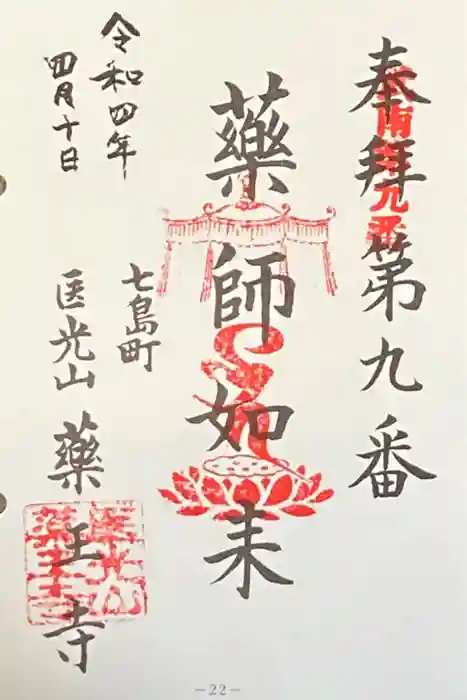 奉拜第九番
薬師如来
令和四年
四月十日
七島町
医光山
薬王寺
-22-